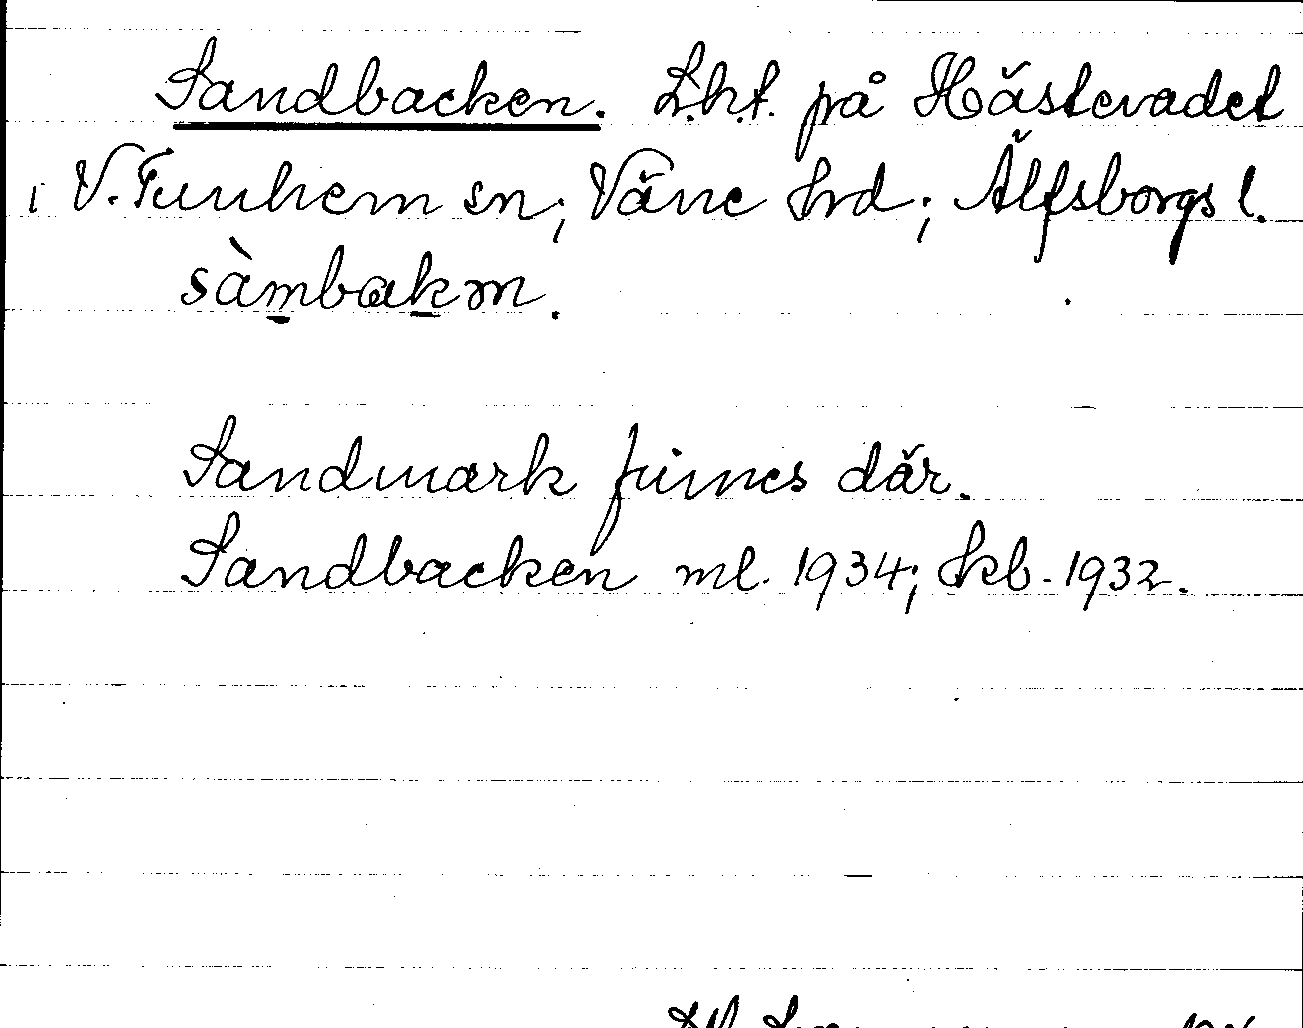 Sandbacken. L.h.t. på Hästevadet
i V. Tunhem sn; Väne hrd; Älfsborgs l.
sàmbakm.
Sandmark finnes där.
Sandbacken ml. 1934; kb. 1932.